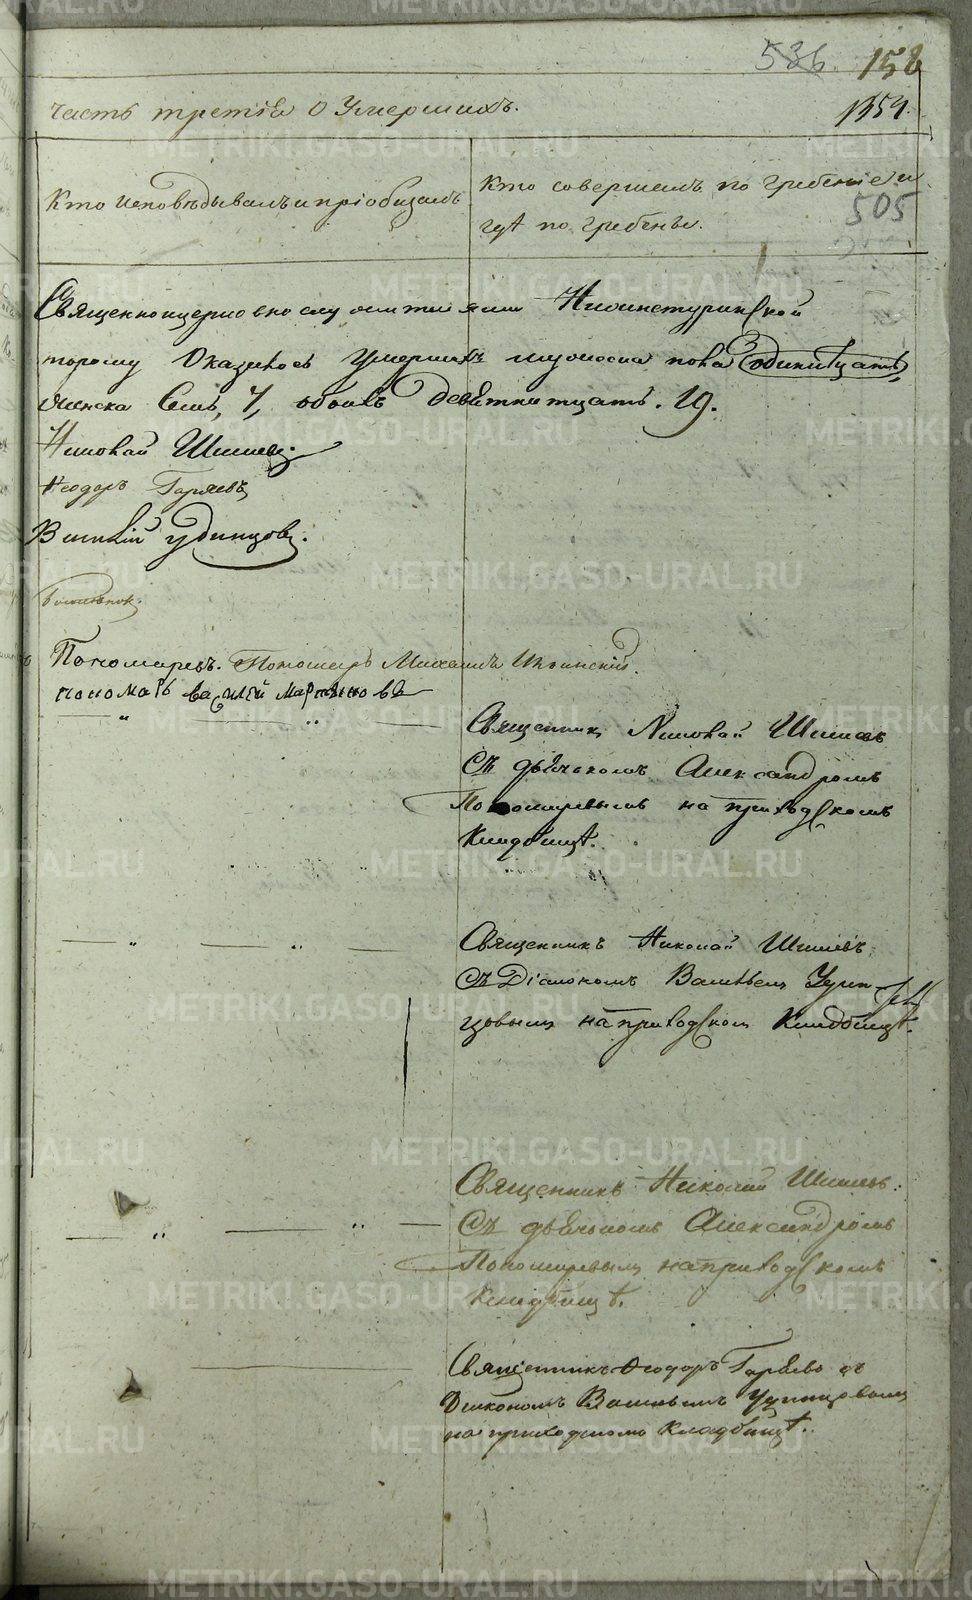 536. 158
часть третія о Умершихъ.
1354.
Кто исповѣдывалъ и пріобщалъ
Кто совершалъ погребеніе и
гдѣ погребены.
505
Священноцерковнослужителями Нижнетуринской
Оказалось умершихъ мужеска пола одинатцать,
женска семь, 7, обоихъ девятнатцать. 19.
Николай Шишевъ
Ѳеодоръ Гаряевъ
Василій Удинцовъ.
Пономаревъ. Пономарь Михаилъ
пономарь василій мартыновъ
Священникъ Николай Шишевъ
Съ дьячкомъ Александромъ
Пономаревымъ на приходскомъ
Кладбищѣ.
Священникъ Николай Шишевъ
Съ Діакономъ Васильемъ Удин-
цовымъ на приходскомъ Кладбищѣ.
Священникъ Николай Шишевъ
Съ дьячкомъ Александромъ
Пономаревымъ на приходскомъ
Кладбищѣ.
Священникъ Ѳеодоръ Гаряевъ съ
Діакономъ Васильемъ Удинцовымъ
на приходскомъ кладбищѣ.
METRIKI.GASO-URAL.RU